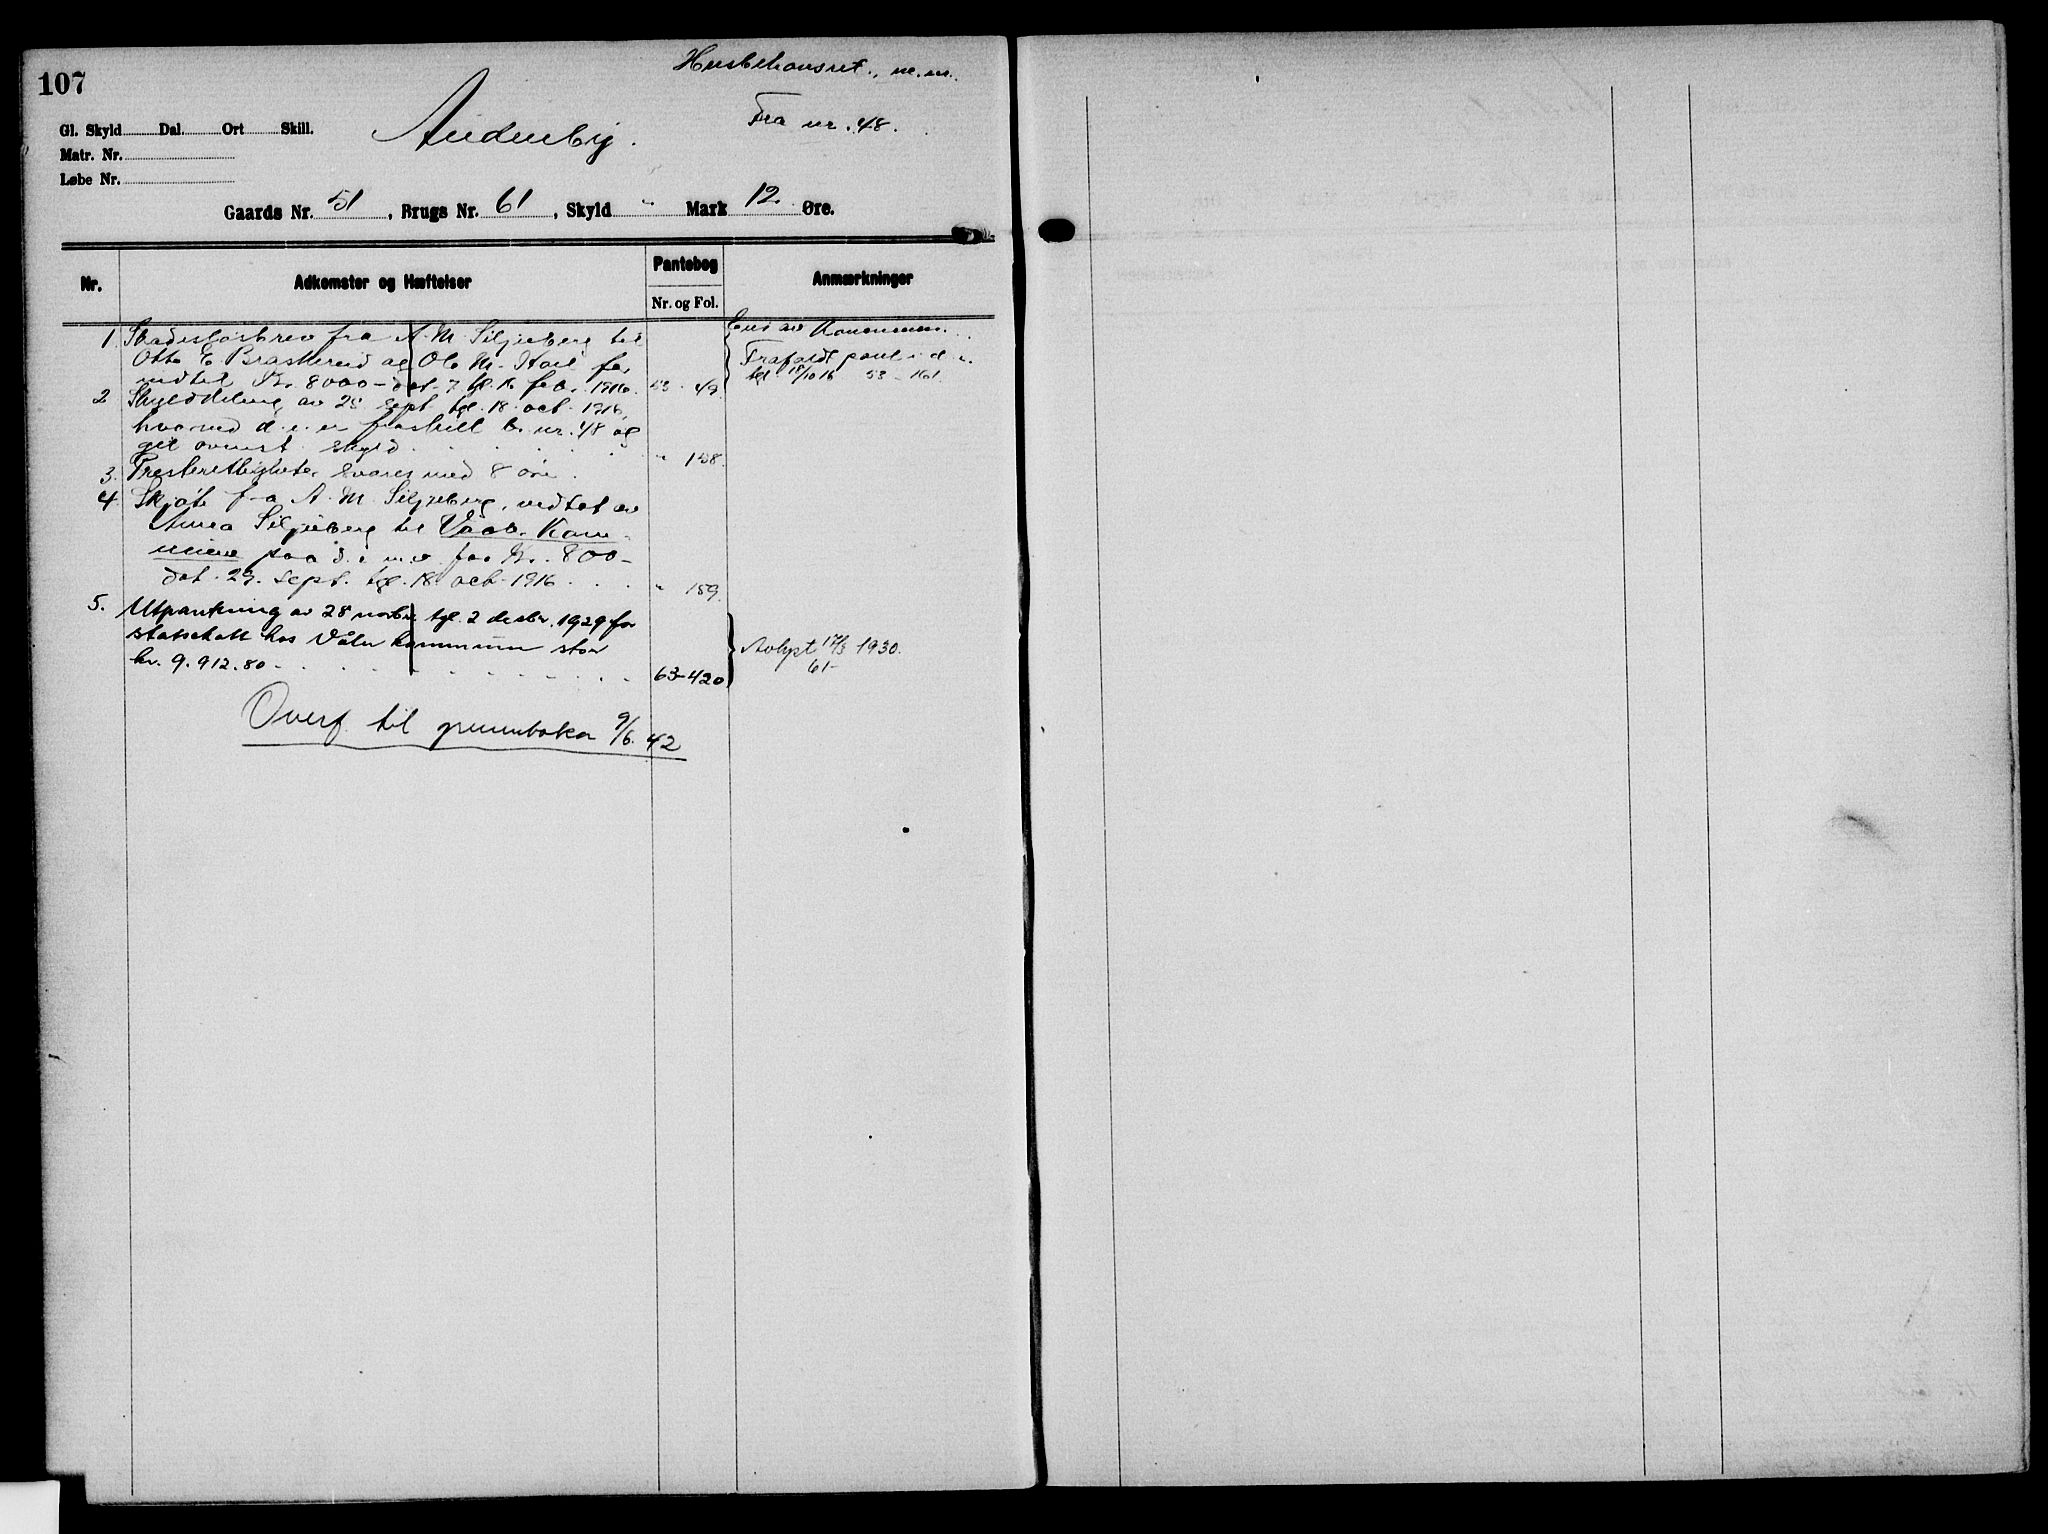 107
Husbehovsret., m.m.
Fra nr. 48.
Gl. Skyld Dal. Ort Skill.
Matr. Nr.
Løbe Nr.
Gaards Nr. 51, Brugs Nr. 61, Skyld " Mark 12 Øre.
Nr. Adkomster og Hæftelser Pantebog Nr. og Fol. Anmærkninger
1. Skadesløsbrev fra A. M. Siljuberg til
Otto E. Braskerud og Ole M. for
indtil Kr. 8000 - dat. 7. tgl. 16 febr. 1916. 53 - 49
Frafaldt pant i d. e.
tgl. 18/10 16 53 - 161.
2 Skylddeling av 25 sept. tgl. 18. oct. 1916,
hvorved d. e. er fraskilt b. nr. 48 og
git ovenst. skyld . . . . . . " 158.
3. Presterettigheter svares med 8 øre.
4. Skjøte fra A. M. Siljuberg, vedtat av
Anna Siljuberg til Vaaler Kom-
mune paa d. e. m. v. for Kr. 800 -
dat. 29. sept. tgl. 18. oct. 1916 . . . " 159.
5. Utpantning av 28 novbr. tgl. 2 desbr. 1929 for
statsskatt hos Våler kommune stor
kr. 9.912.80 - . . . . . . 63-420
Avlyst 17/3 1930.
61-
Overf. til grunnboka 9/6. 42